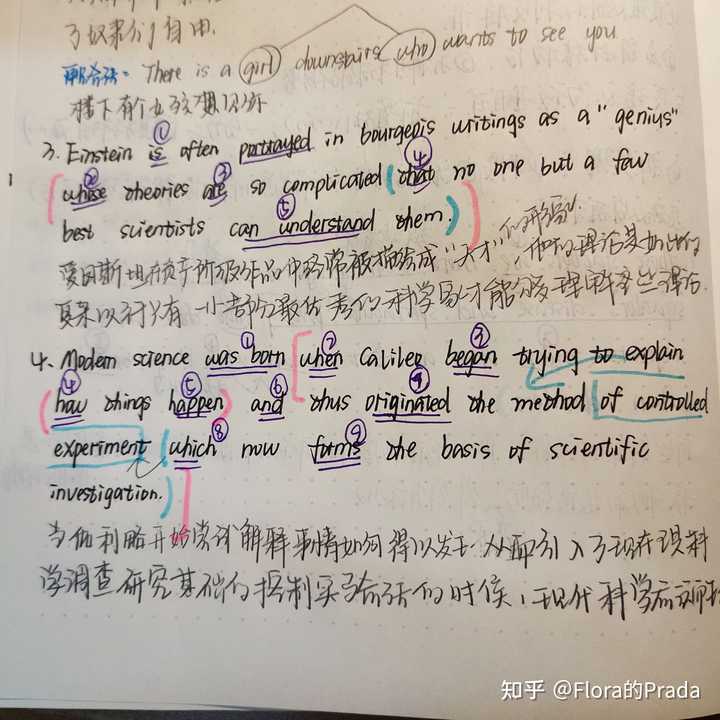 了奴隶们自由.
There is a girl downstairs who wants to see you
楼下有个女孩想见你
① ③ ④
3. Einstein is often portrayed in bourgeois writings as a "genius"
② whose theories are so complicated (that no one but a few
⑤
best scientists can understand them.)
爱因斯坦在资产阶级作品中经常被描绘成"天才"的形象, 他的理论是如此的
复杂以讨只有一小部分最优秀的科学家才能够理解这些理论.
① ② ③
4. Modern science was born when Galileo began trying to explain
④ ⑤ ⑥
how things happen and thus originated the method of controlled
⑧ ⑨
experiment, which now forms the basis of scientific
investigation.
当伽利略开始尝试解释事情如何得以发生 从而引入了现在现科
学调查研究基础的控制实验方法的时候, 现代科学
知乎 @Flora的Prada